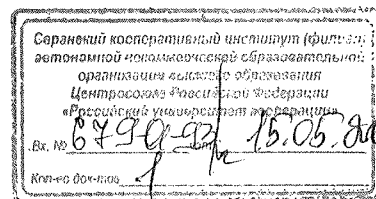 Саранский кооперативный институт (филиал)
автономной некоммерческой образовательной
организации высшего образования
Центросоюза Российской Федерации
«Российский университет кооперации»
Вх. № 15.05.20
Кол-во док-тов 1